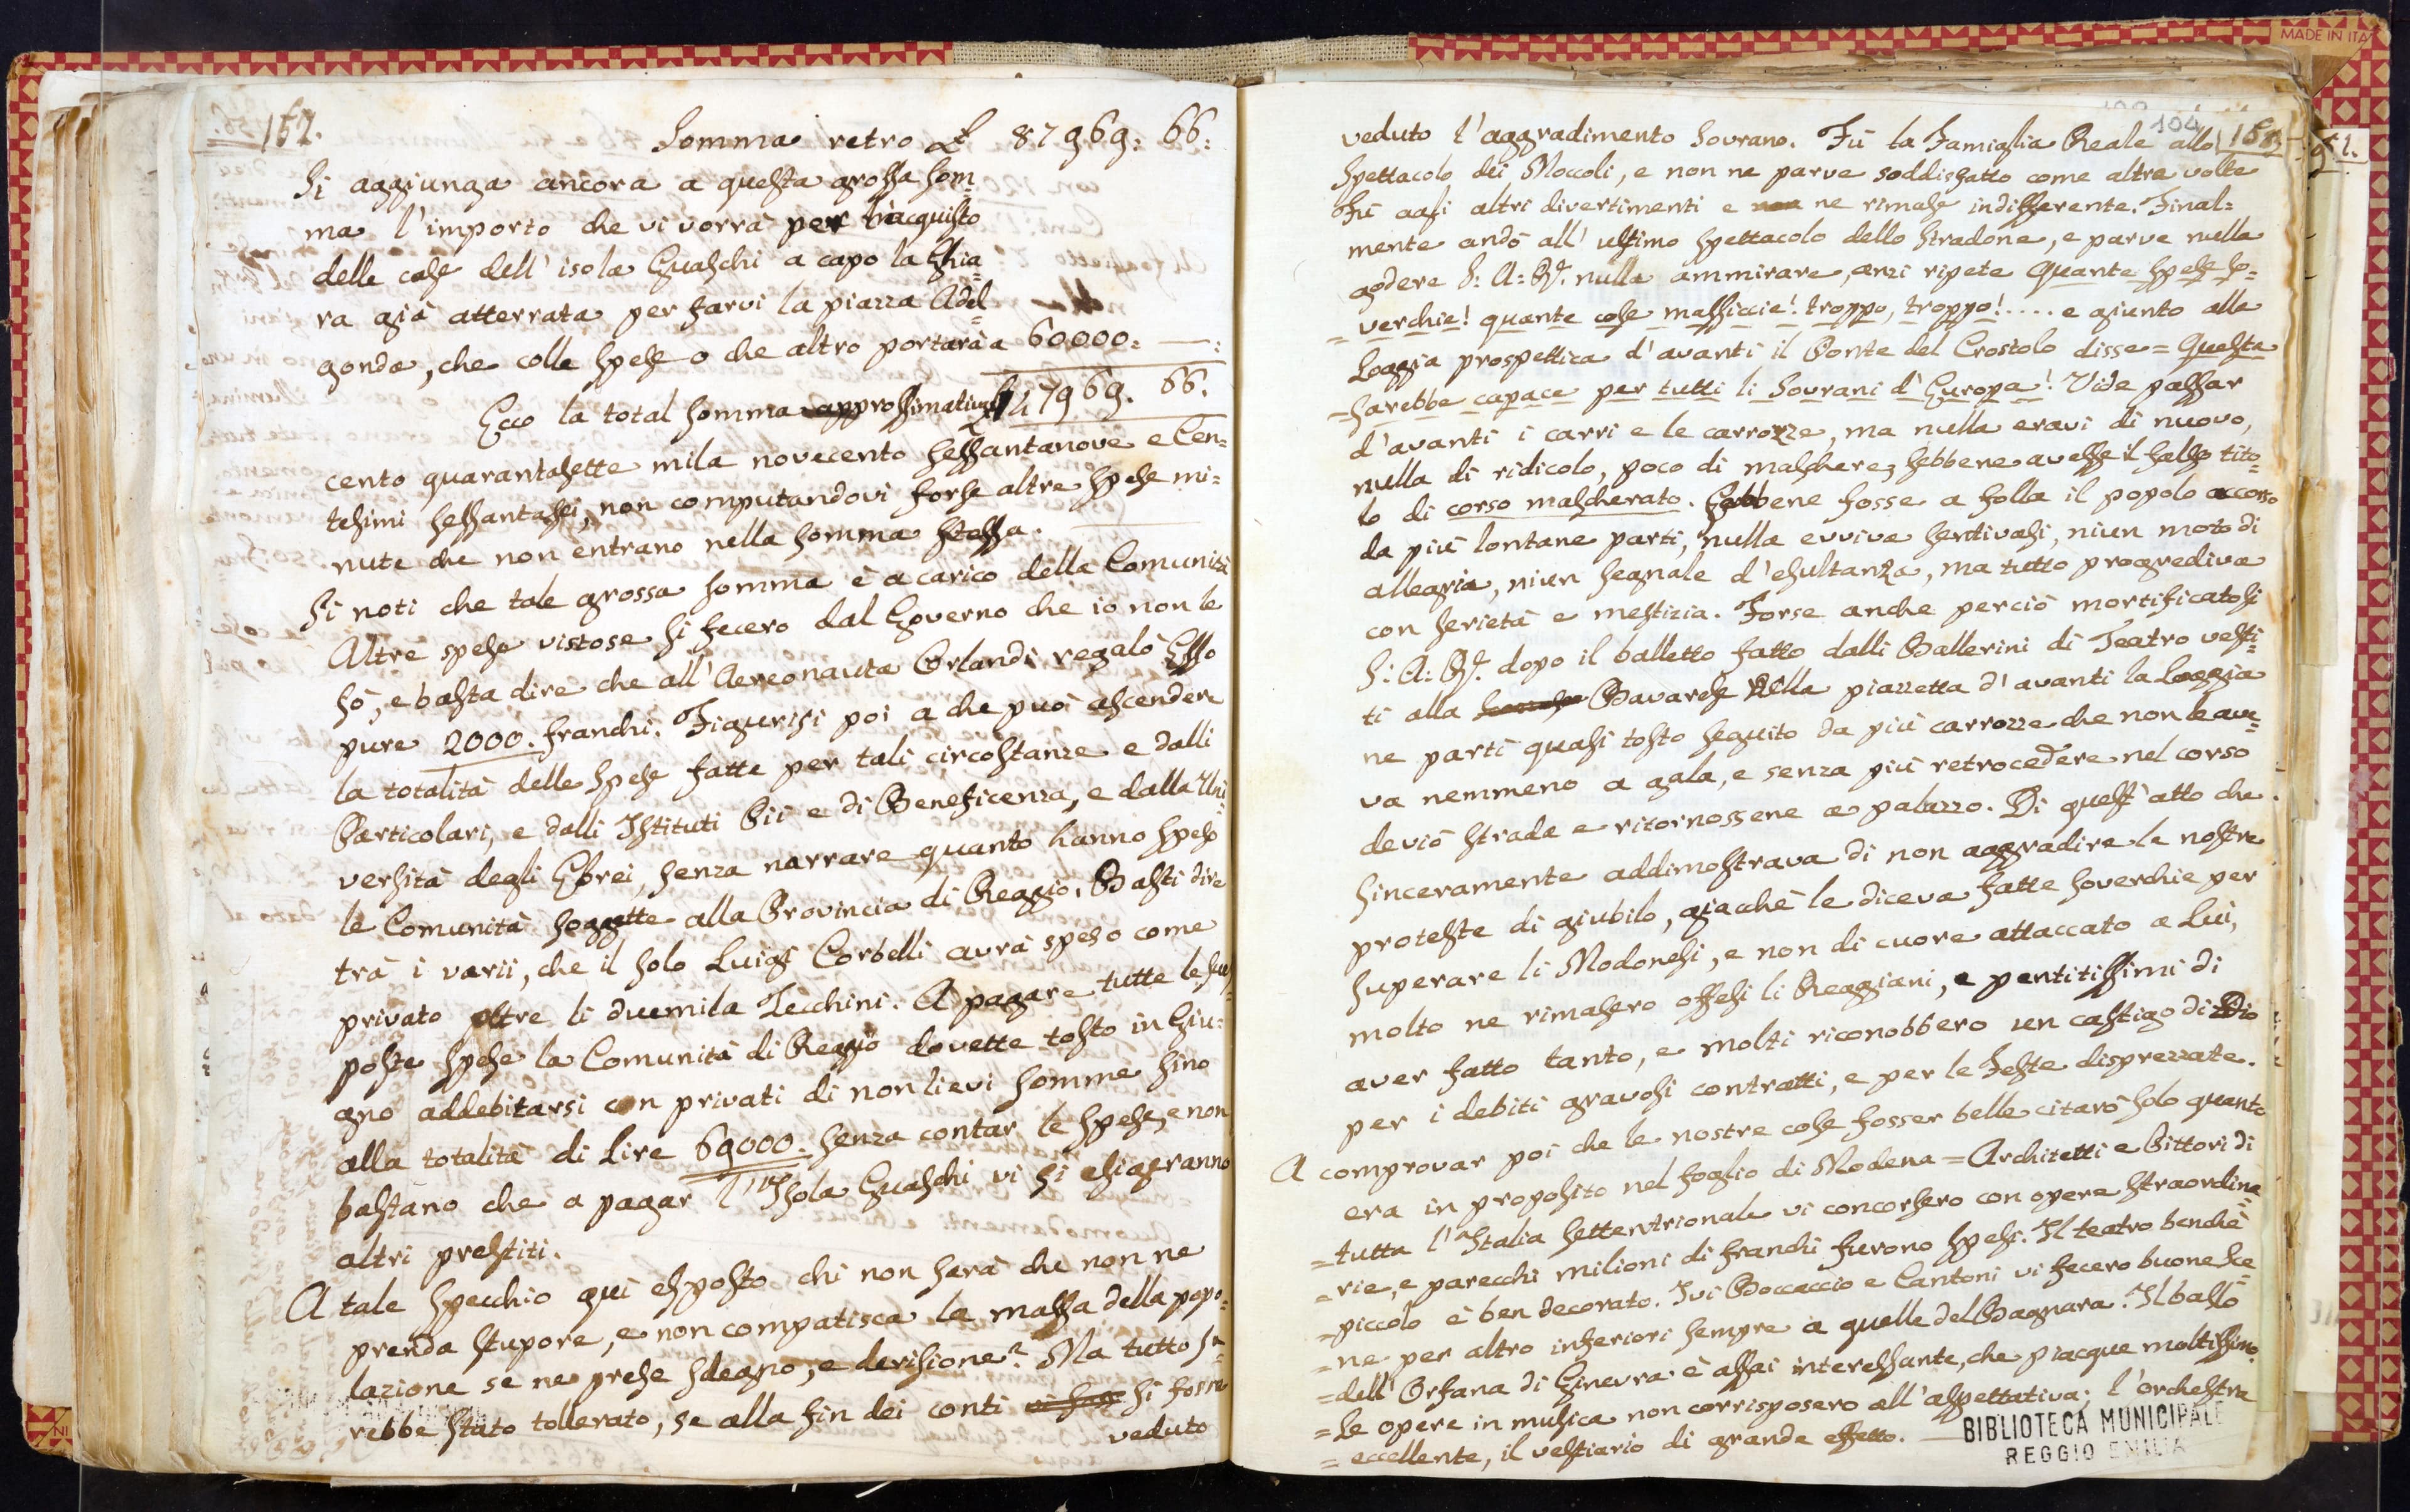 152.
Somma retro £ 87969: 66:
Si aggiunga ancora a questa grossa som=
ma l'importo che vi vorrà per l'acquisto
delle case dell'isola Guaschi a capo la Ghia=
ra già atterrata per farvi la piazza Adel=
gonda, che colle spese o che altro portarà a 60000: —:
Ecco la total somma approssimativa £ 147969. 66.
cento quarantasette mila novecento sessantanove e Cen=
tesimi sessantasei, non computandovi forse altre spese mi=
nute che non entrano nella somma stessa.
Si noti che tale grossa somma è a carico della Comunità
Altre spese vistose si fecero dal Governo che io non le
sò, e basta dire che all'Aereonauta Orlandi regalò Esso
pure 2000. franchi. Figurisi poi a che può ascendere
la totalità delle spese fatte per tali circostanze e dalli
Particolari, e dalli Istituti Pii e di Beneficenza, e dalla Uni
versità degli Ebrei, senza narrare quanto hanno speso
le Comunità soggette alla Provincia di Reggio. Basti dire
trà i varii, che il solo Luigi Corbelli avrà speso come
privato oltre li duemila Zecchini. A pagare tutte le sup=
poste spese la Comunità di Reggio dovette tosto in Giu=
gno addebitarsi con privati di non lievi somme sino
alla totalità di Lire 69000. senza contar le spese, e non
bastano che a pagar l'Isola Guaschi vi si esigeranno
altri prestiti.
A tale specchio quì esposto chi non sarà che non ne
prenda stupore, e non compatisca la massa della popo=
lazione se ne prese sdegno, e derisione? Ma tutto sa=
rebbe stato tollerato, se alla fin dei conti si fosse
veduto
104
153
veduto l'aggradimento Sovrano. Fù la Famiglia Reale allo
Spettacolo dei Moccoli, e non ne parve soddisfatto come altre volte
Fù agli altri divertimenti e non ne rimase indifferente. Final=
mente andò all'ultimo spettacolo dello Stradone, e parve nulla
godere S: A: R. nulla ammirare, anzi ripete Quante spese so=
= verchie! quante cose massiccie! troppo, troppo!.... e giunto alla
Loggia prospettica d'avanti il Ponte del Crostolo disse = Questa
= sarebbe capace per tutti li Sovrani d'Europa! Vide passar
d'avanti i carri e le carrozze, ma nulla eravi di nuovo,
nulla di ridicolo, poco di maschere, sebbene avesse il falso tito=
lo di corso mascherato. Sebbene fosse a folla il popolo accorso
da più lontane parti, nulla evviva sentivasi, niun moto di
allegria, niun segnale d'esultanza, ma tutto progrediva
con serietà e mestizia. Forse anche perciò mortificatosi
S: A: R. dopo il balletto fatto dalli Ballerini di Teatro vesti=
ti alla Bavarese nella piazzetta d'avanti la Loggia
ne partì quasi tosto seguito da più carrozze che non le ave=
va nemmeno a gala, e senza più retrocedere nel corso
deviò strada e ritornossene a palazzo. Di quest'atto che
sinceramente addimostrava di non aggradire le nostre
proteste di giubilo, giacchè le diceva fatte soverchie per
superare li Modonesi, e non di cuore attaccato a Lui,
molto ne rimasero offesi li Reggiani, e pentitissimi di
aver fatto tanto, e molti riconobbero un castigo di Dio
per i debiti gravosi contratti, e per le Feste disprezzate.
A comprovar poi che le nostre cose fosser belle citarò solo quanto
era in proposito nel foglio di Modena = Architetti e Pittori di
= tutta l'Italia settentrionale vi concorsero con opere straordina=
= rie, e parecchi milioni di franchi furono spesi. Il teatro benchè
= piccolo è ben decorato. Ivi Boccaccio e Cantoni vi fecero buone Sce=
= ne per altro inferiori sempre a quelle del Bagnara. Il ballo
= dell'Orfana di Ginevra è assai interessante, che piacque moltissimo.
= Le opere in musica non corrisposero all'aspettativa; l'orchestra
= eccellente, il vestiario di grande effetto. —
BIBLIOTECA MUNICIPALE
REGGIO EMILIA
MADE IN ITA